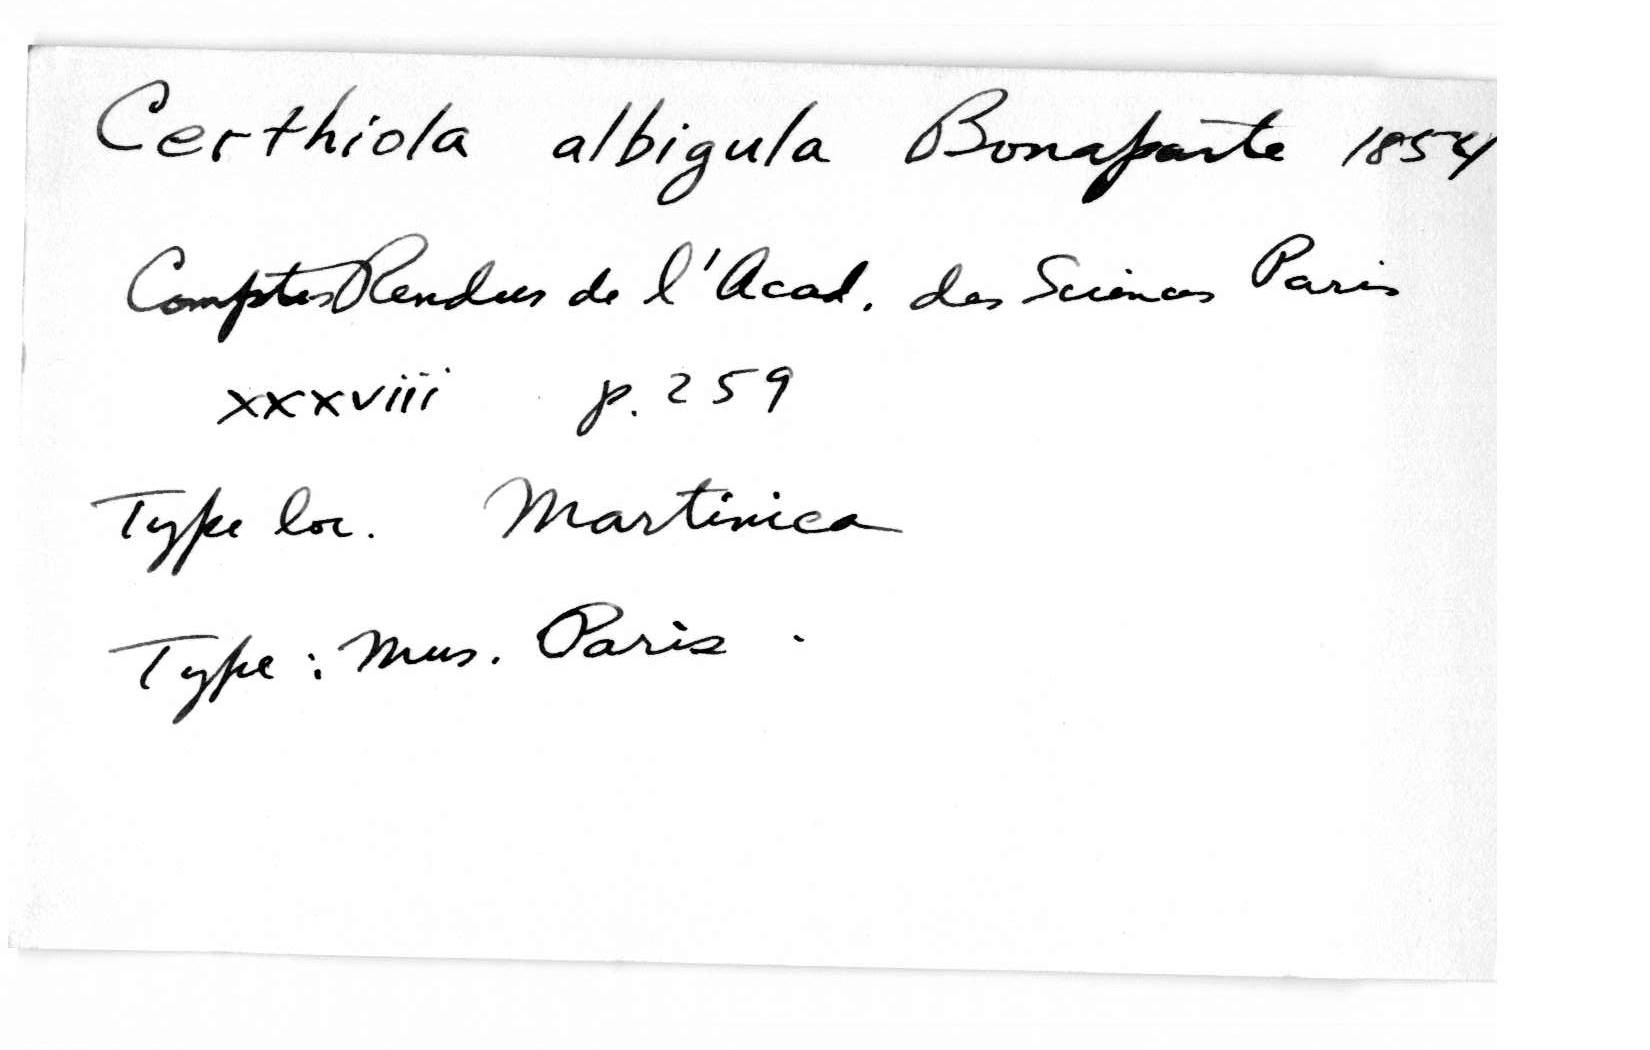 Certhiola albigula Bonaparte 1854
Comptes Rendus de l'Acad. des Sciences Paris
xxxviii p. 259
Type loc. Martinica
Type : Mus. Paris .